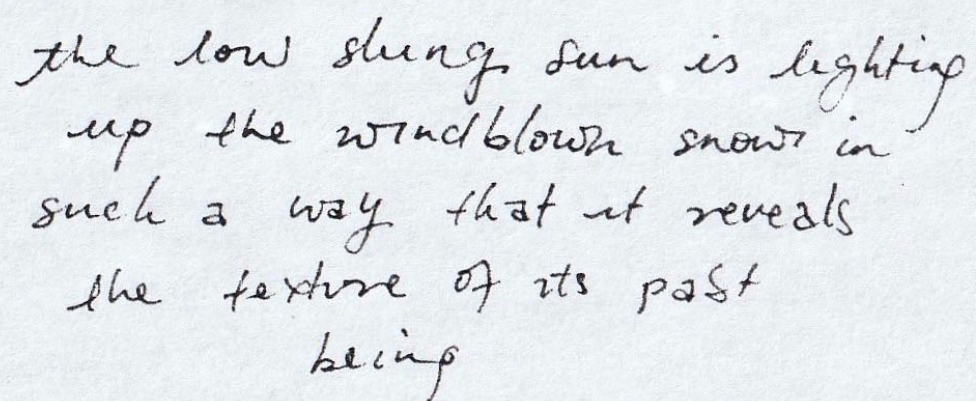 the low slung sun is lighting
up the windblown snow in
such a way that it reveals
the texture of its past
being